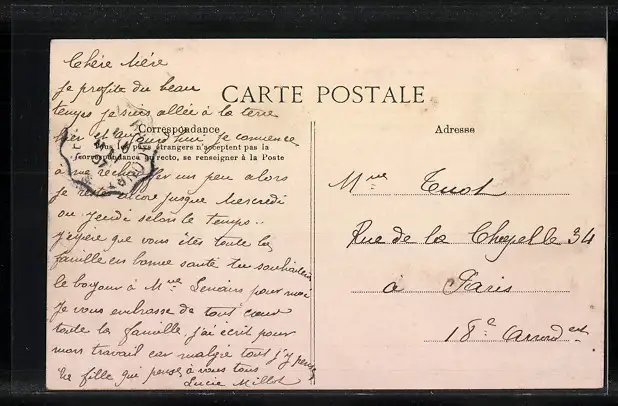 Chère Mère
je profite du beau
temps je suis allée à la terre
hier et aujourd'hui je comence
à me rechauffer un peu alors
je reste encore jusque Mercredi
ou Jeudi selon le temps..
j'éspère que vous êtes toute la
famille en bonne santé tu souhaitera
le bonjour à Mme pour moi
Je vous embrasse de tout cœur
toute la famille, j'ai écrit pour
mon travail car malgré tout j'y pense
ta fille qui pense à vous tous
Lucie Millot
CARTE POSTALE
Correspondance
Tous les pays étrangers n'acceptent pas la
correspondance au recto, se renseigner à la Poste
Adresse
Mme Tuot
Rue de la Chapelle 34
à Paris
18e Arrondest